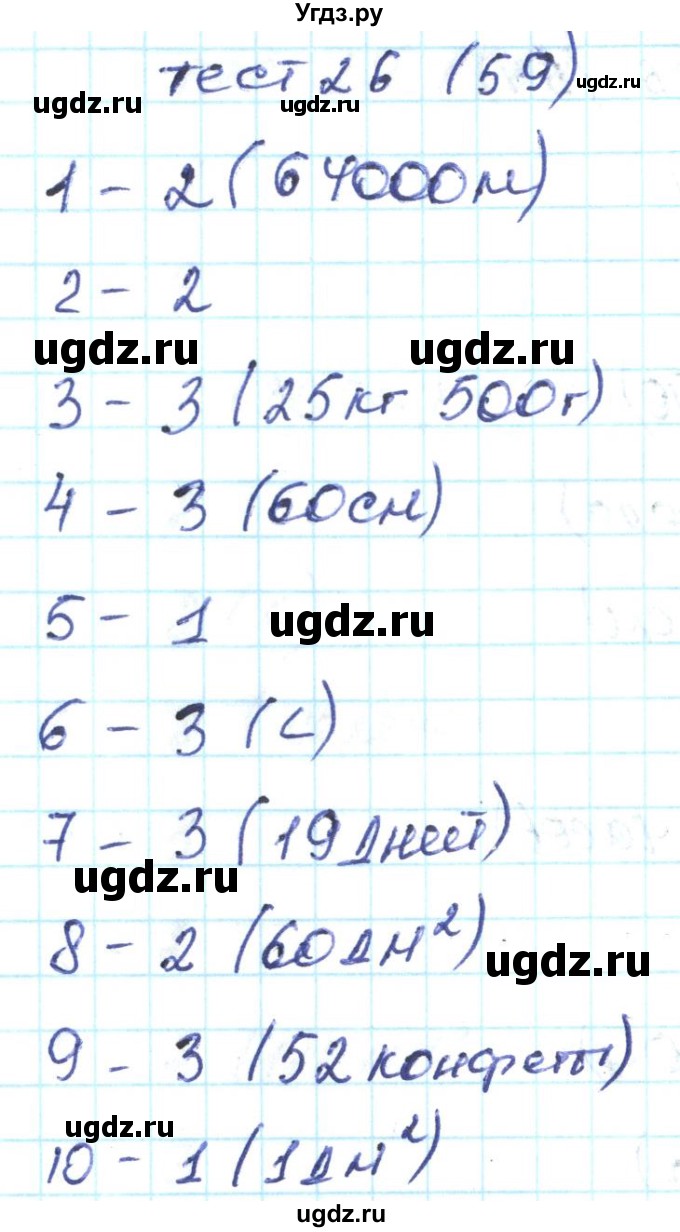 Угдз.ру
тест 26 (59)
ugdz.ru
ugdz.ru
ugdz.ru
1 - 2 (64000м)
2 - 2
ugdz.ru
ugdz.ru
3 - 3 (25кг 500г)
4 - 3 (60см)
5 - 1
ugdz.ru
6 - 3 (<)
7 - 3 (19 дней)
ugdz.ru
8 - 2 (60дм²)
ugdz.ru
9 - 3 (52 конфеты)
ugdz.ru
10 - 1 (1дм²)
ugdz.ru